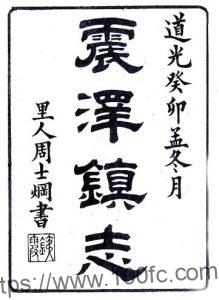 道光癸卯孟冬月
震澤鎮志
里人周士爛書
https://www.100fc.com